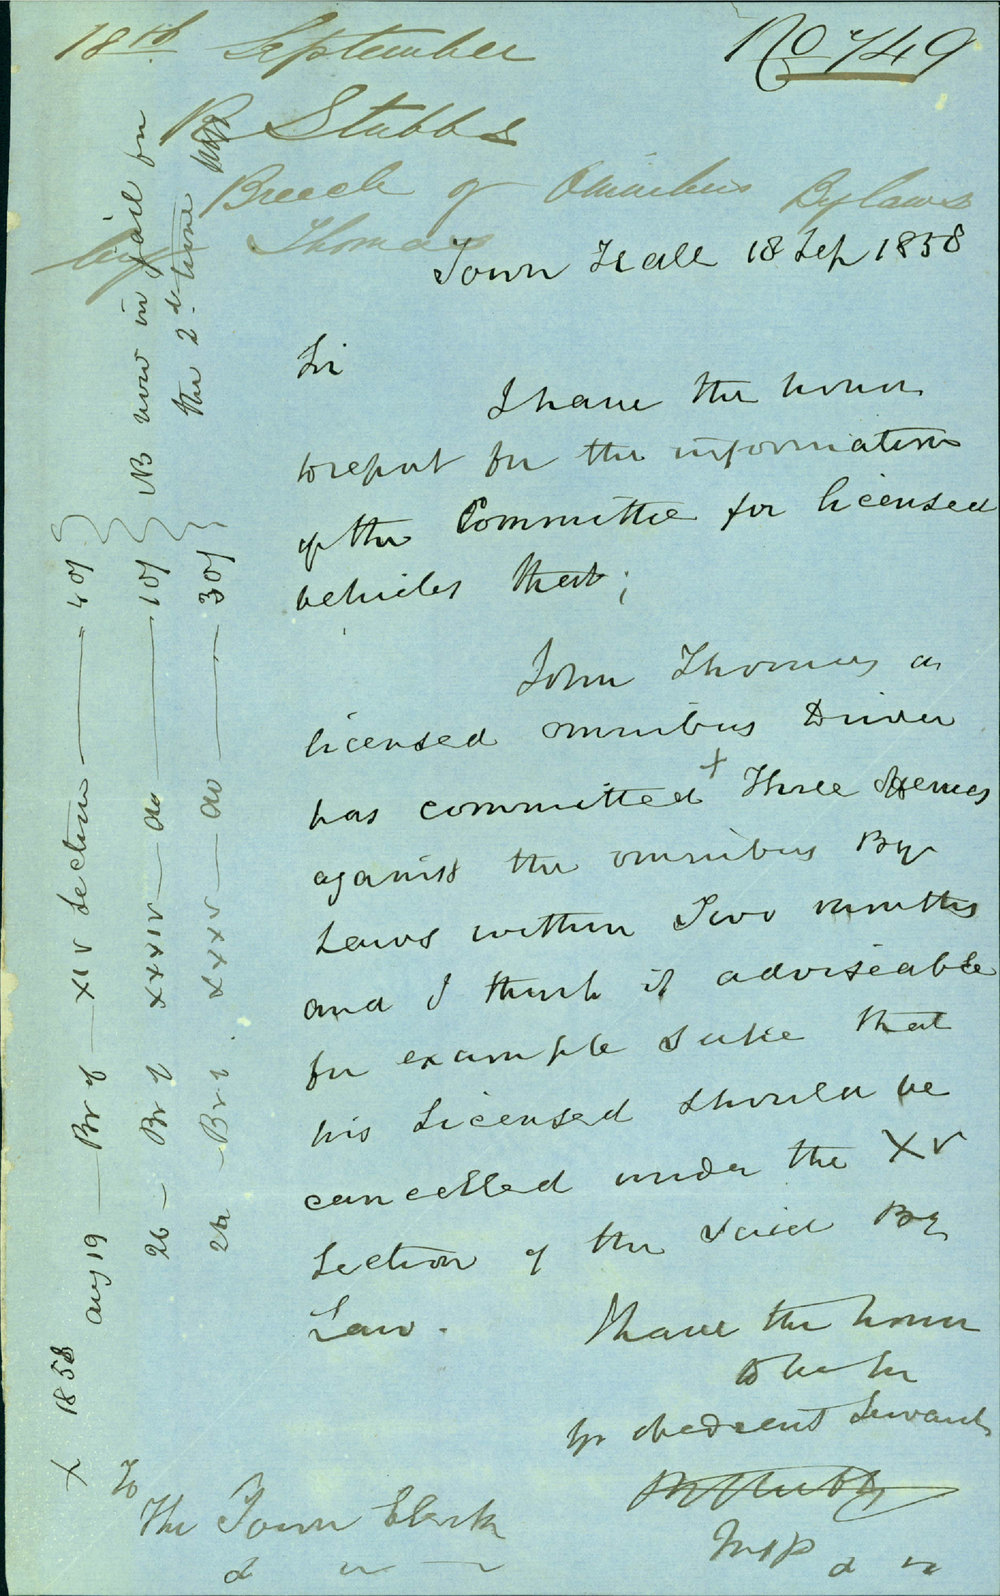 18th September
No 749
R Stubbs
Breech of Omnibus Bylaws
by Thomas
Town Hall 18 Sep 1858
Sir
I have the honor
to report for the information
of the Committee for licensed
vehicles that;
John Thomas a
licensed omnibus Driver
has committed + Three offences
against the omnibus By
Laws within Two months
and I think it adviseable
for example sake that
his Licensed should be
cancelled under the XV
Section of the said By
Law.
I have the honor
to be Sir
yr obedient Servant
R Stubbs
To
The Town Clerk
x 1858
aug 19 — Br of — XIV Section — 40/
26 — Br of XXXIV — do — 10/
Br XXXV — do — 30/
NB now in jail for
the 2d time